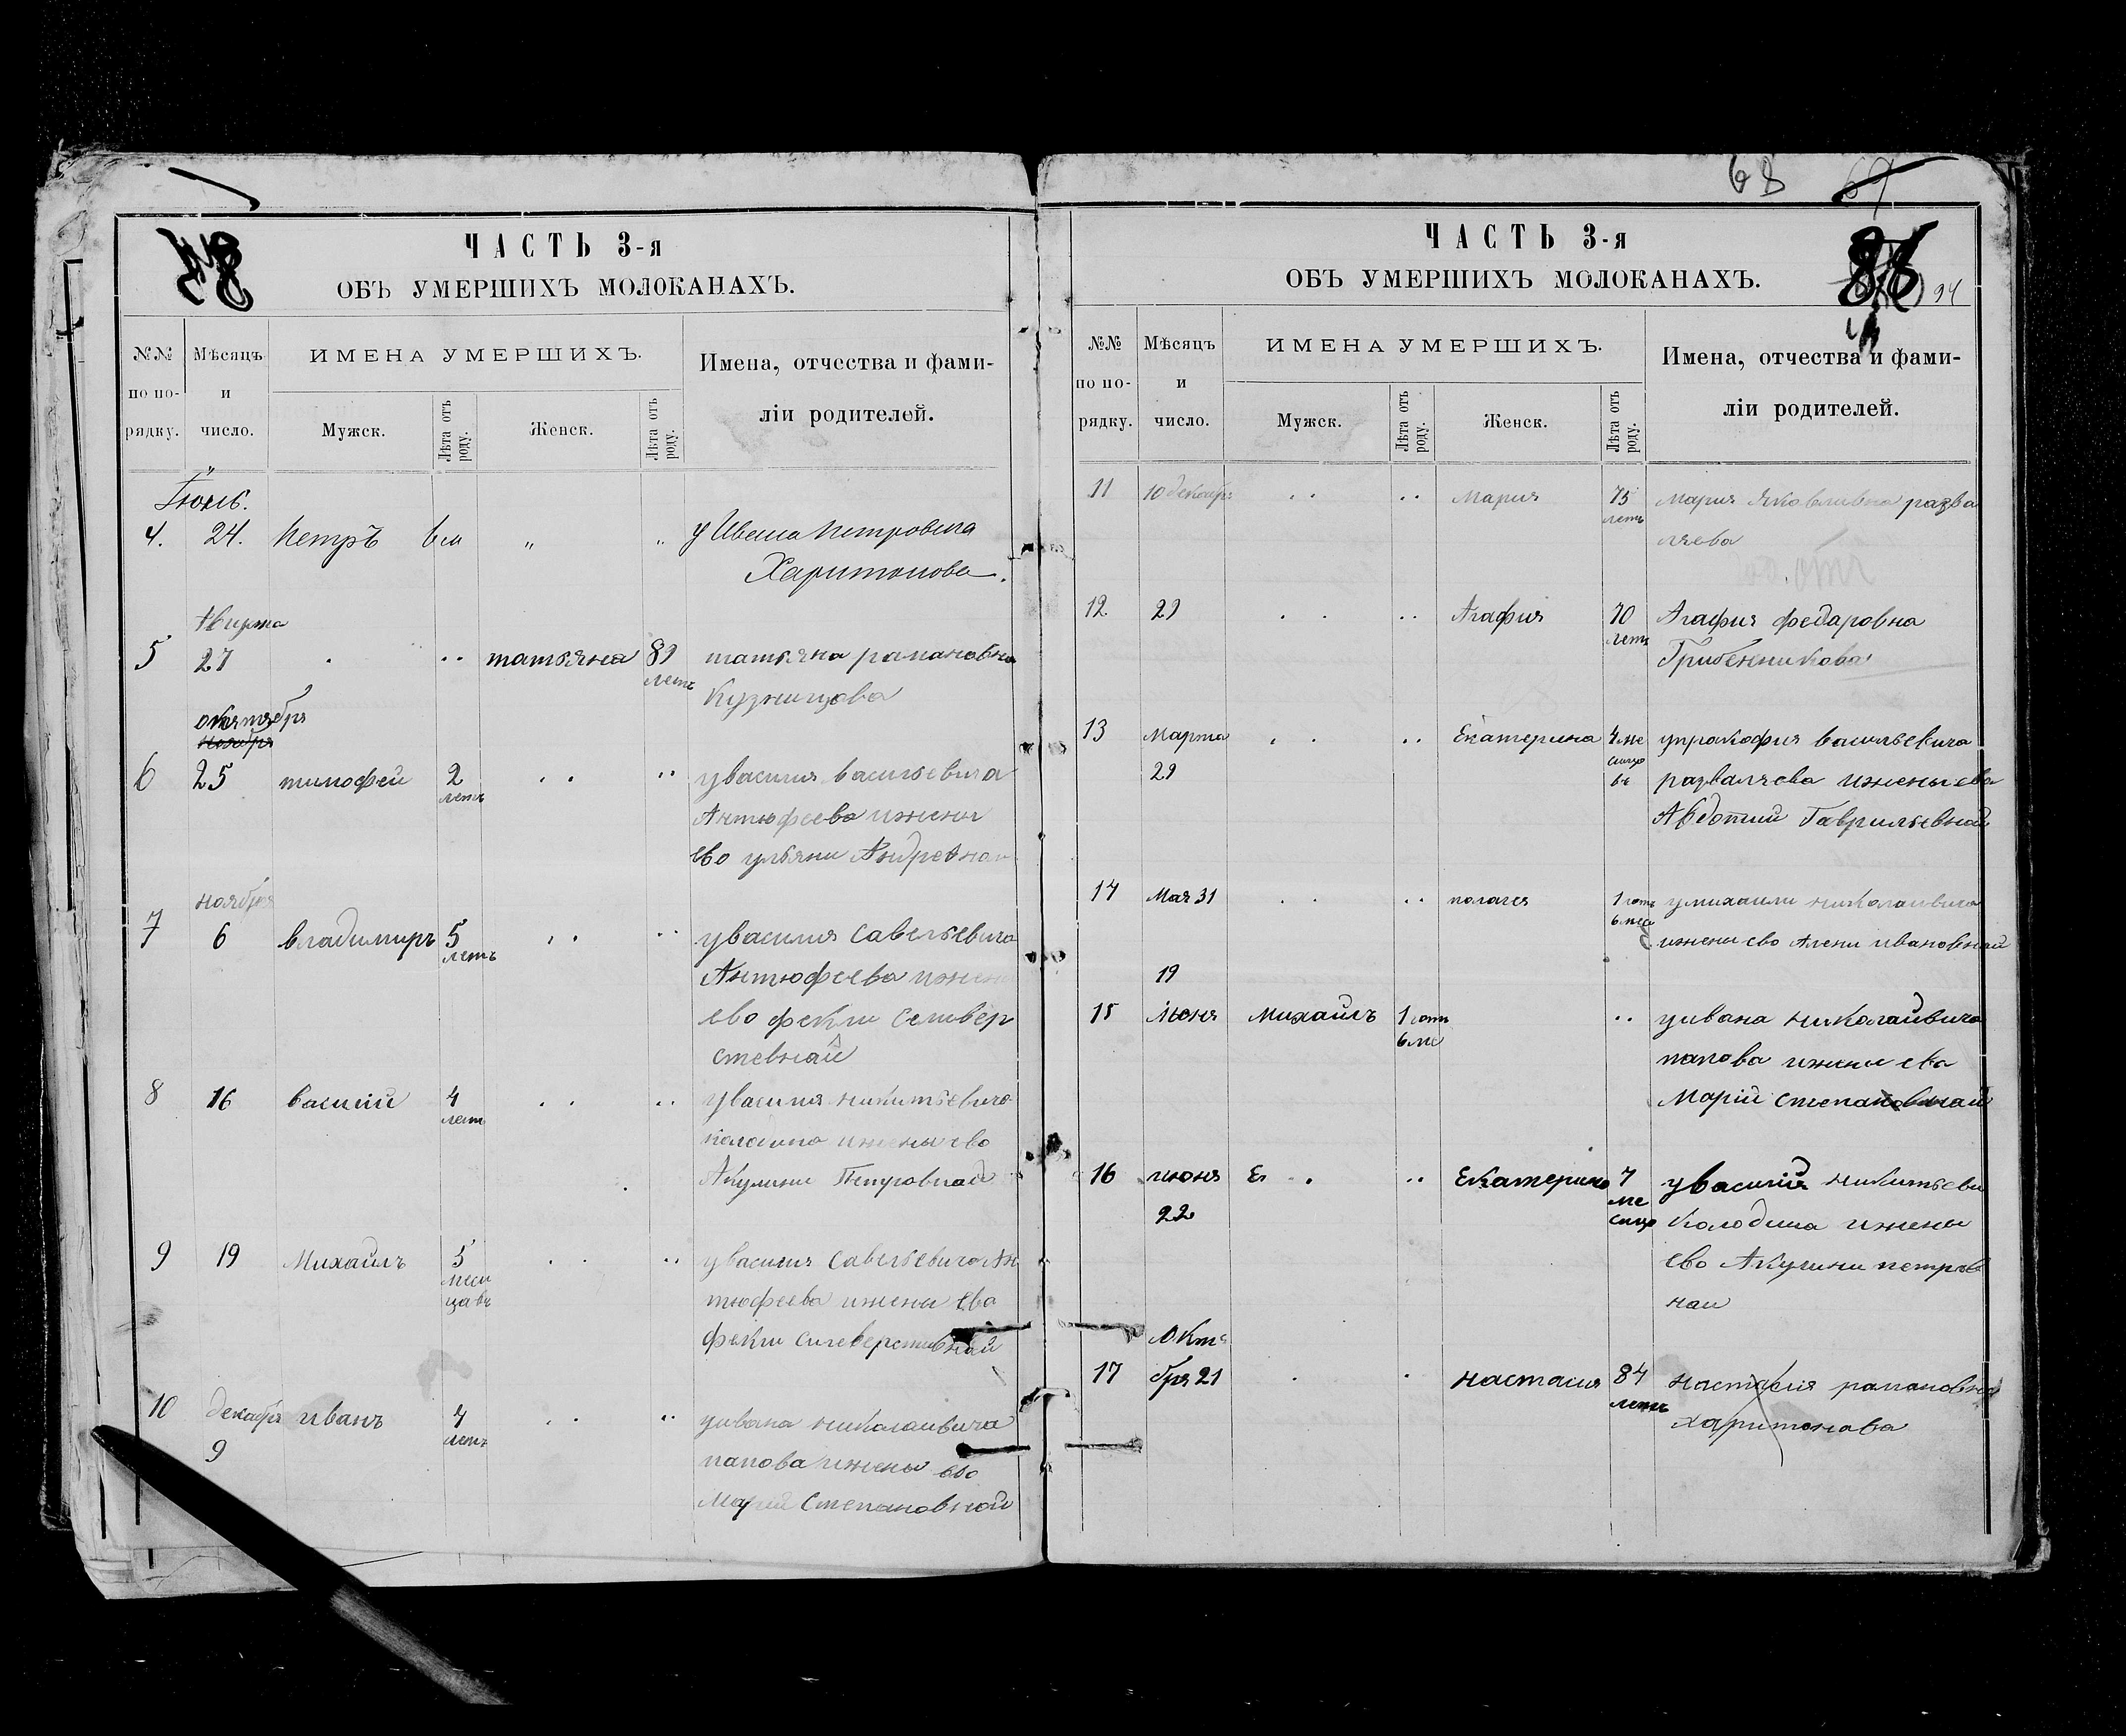 ЧАСТЬ 3-я
ОБЪ УМЕРШИХЪ МОЛОКАНАХЪ.
№№ по порядку.
Мѣсяцъ и число.
ИМЕНА УМЕРШИХЪ.
Мужск.
Лѣта отъ роду.
Женск.
Лѣта отъ роду.
Имена, отчества и фами-
ліи родителей.
Іюль.
4. 24. Петръ 6 м " " у Ивана Петровича
Харитонова.
5 27 татьяна 89 татьяна рамановна
летъ Кузницова
октября
ноября
6 25 тимофей 2 увасилия васильевича
летъ Антюфеева ижены
ево ульяни Андревнои
ноября
7 6 владимиръ 5 увасилия савельевича
летъ Антюфеева ижени
ево фекли селивер
стевнай
8 16 василий 4 увасилия никитьевича
летъ ижены ево
Акулини Петровнай
9 19 Михаилъ 5 увасилия савельевича Ан
меси тюфеева ижены ево
цавъ фекли силеверстивнай
10 декабря иванъ 4 уивана николаивича
9 летъ папова ижены ево
Марии Степановной
68 67
ЧАСТЬ 3-я
ОБЪ УМЕРШИХЪ МОЛОКАНАХЪ.
94
№№ по порядку.
Мѣсяцъ и число.
ИМЕНА УМЕРШИХЪ.
Мужск.
Лѣта отъ роду.
Женск.
Лѣта отъ роду.
Имена, отчества и фами-
ліи родителей.
11 10 декабря Мария 75 Мария Яковливна разва
летъ ляева
12. 29 Агафия 70 Агафия федаровна
летъ Грибенникова
13 Марта Екатерина 4 ме упрокофия васильевича
29 разваляева ижены ева
Авдотии Гаврильевнай
14 Мая 31 палагея 1 готъ умихаили николаивича
6 меся ижени ево Алени ивановнай
19
15 Июня Михаилъ 1 готъ уивана николаивича
6 ме папова ижены ева
Марій степановнай
16 июня Е Екатерина 7 увасилия никитьеви
22 ме Колодина ижены
сицо ево Акулини петров
наи
Октя
17 бря 21 настасия 84 настасия рамановна
летъ харитонава